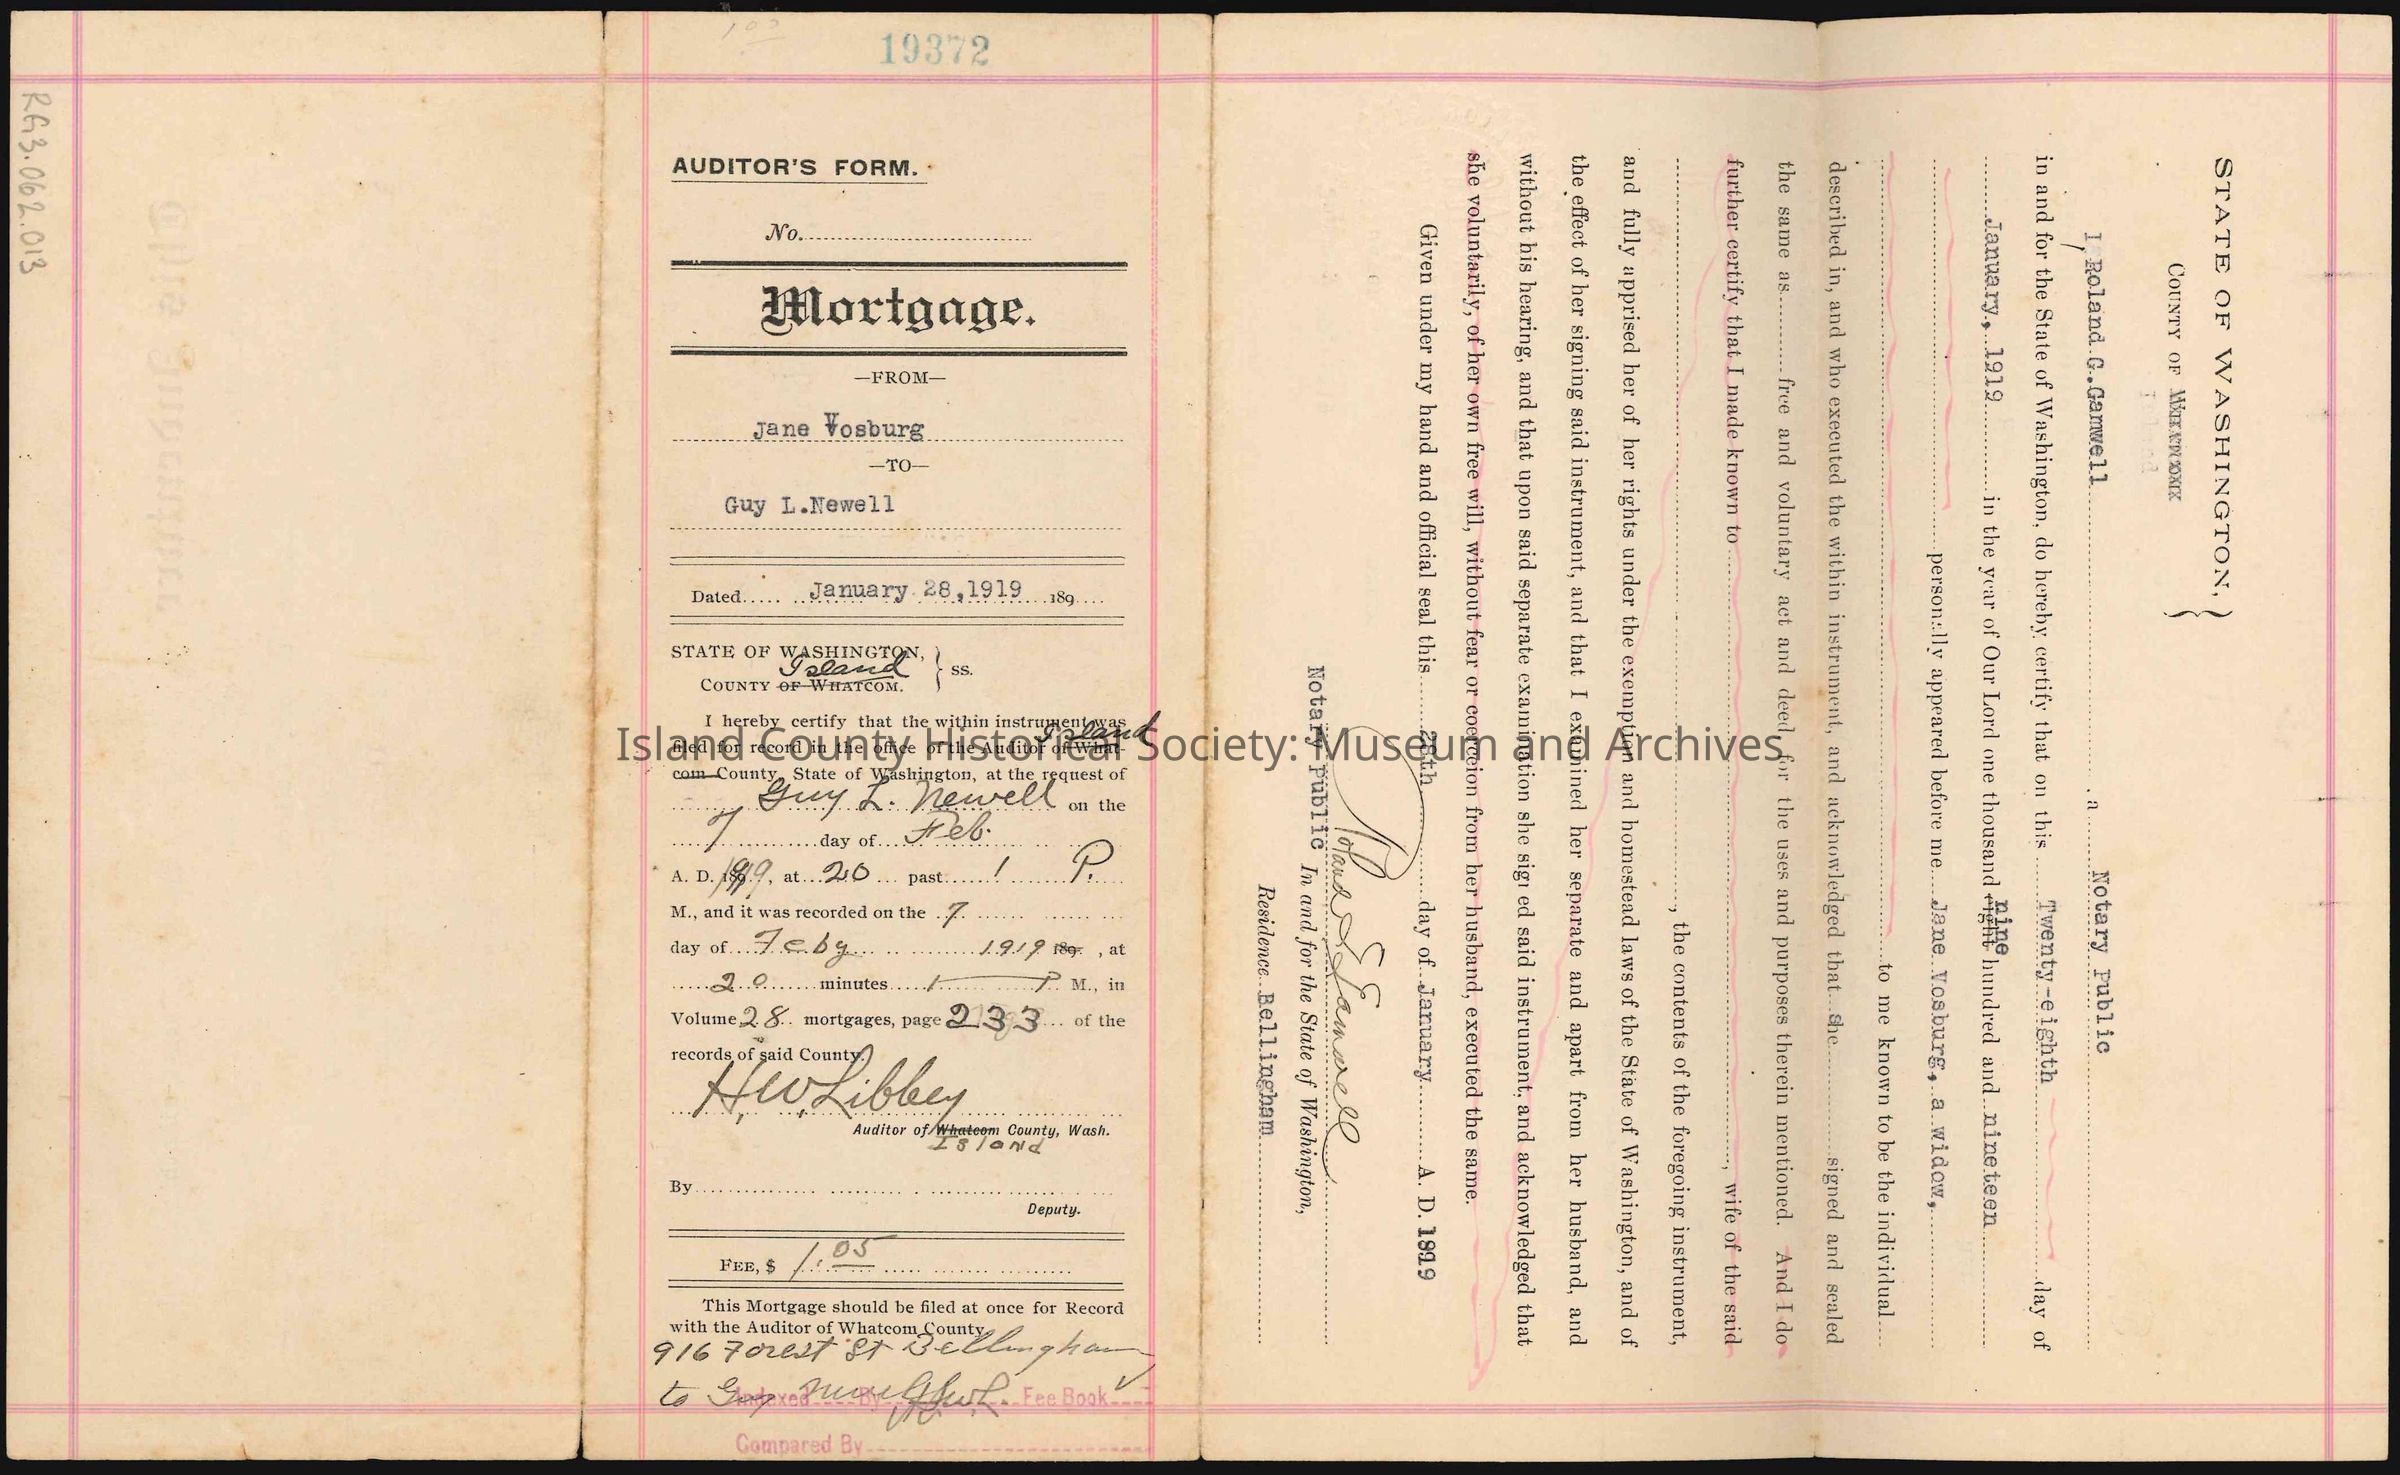 RG3.062.013
19372
AUDITOR'S FORM.
No.
Mortgage.
—FROM—
Jane Vosburg
—TO—
Guy L.Newell
Dated January 28,1919 189
STATE OF WASHINGTON,
Island
COUNTY OF WHATCOM.
} ss.
I hereby certify that the within instrument was
Island
filed for record in the office of the Auditor of What-
com County, State of Washington, at the request of
Guy L. Newell on the
7 day of Feb.
A. D. 1919, at 20 past 1 P.
M., and it was recorded on the 7
day of Feby 1919 189 , at
20 minutes 1 P M., in
Volume 28 mortgages, page 233 of the
records of said County.
H.W. Libbey
Auditor of Whatcom County, Wash.
Island
By
Deputy.
FEE, $ 1.05
This Mortgage should be filed at once for Record
with the Auditor of Whatcom County.
916 Forest St Bellingham
to Guy
Indexed By Fee Book
Compared By
STATE OF WASHINGTON,
COUNTY OF
Island
I, Roland G.Gamwell , a Notary Public
in and for the State of Washington, do hereby certify that on this Twenty-eighth day of
January, 1919 in the year of Our Lord one thousand eight nine hundred and nineteen
personally appeared before me Jane Vosburg, a widow,
to me known to be the individual
described in, and who executed the within instrument, and acknowledged that she signed and sealed
the same as free and voluntary act and deed, for the uses and purposes therein mentioned. And I do
further certify that I made known to , wife of the said
, the contents of the foregoing instrument,
and fully apprised her of her rights under the exemption and homestead laws of the State of Washington, and of
the effect of her signing said instrument, and that I examined her separate and apart from her husband, and
without his hearing, and that upon said separate examination she signed said instrument, and acknowledged that
she voluntarily, of her own free will, without fear or coercion from her husband, executed the same.
Given under my hand and official seal this 28th day of January A. D. 1919
Roland G Gamwell
Notary Public In and for the State of Washington,
Residence Bellingham
Island County Historical Society: Museum and Archives